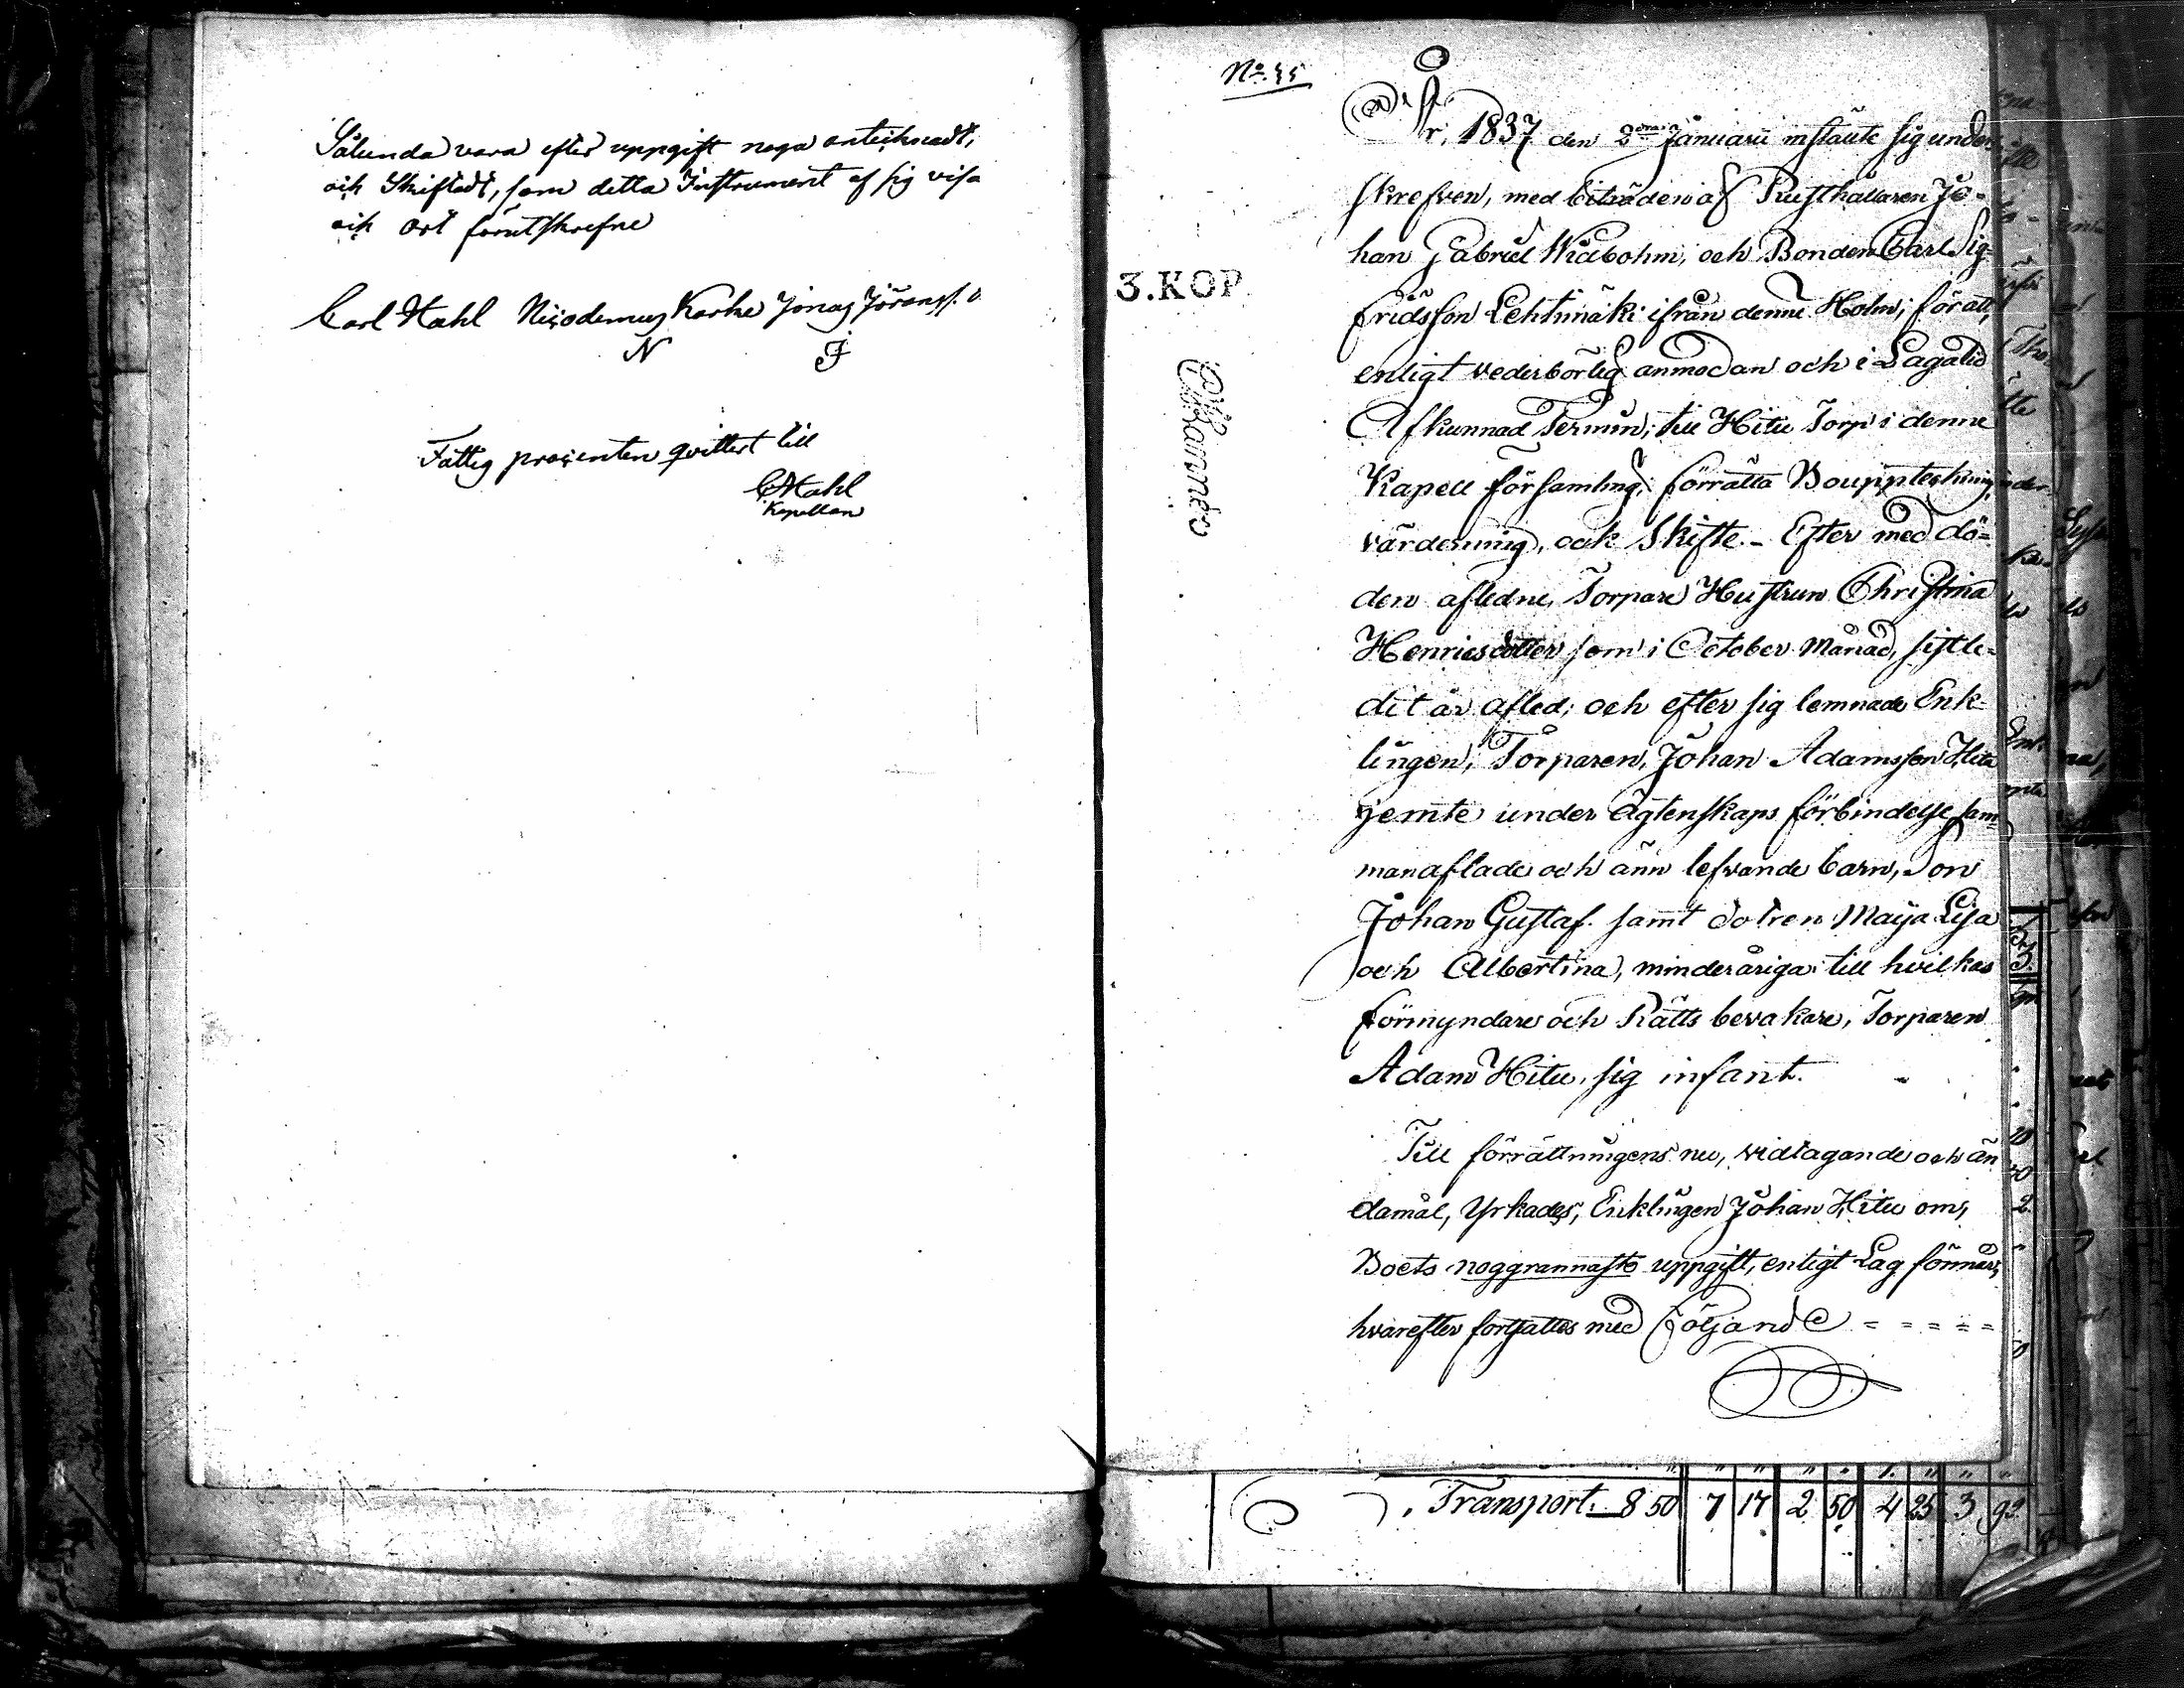 Sålunda vara efter uppgift noga antecknadt,
och Skiftadt, som detta Instrument af sig visa
och ort förutskrefne
Carl Stahl Nicodemus Karke Jonas Jöranss.
N J
Fattig procenten qvittert till
CStahl
Kapellan
No. 45
År, 1837 den 2dra Januarii instälte sig under
skrefven, med biträden af Rusthållaren Jo-
han Gabriel Widbohm, och Bonden Carl Sig-
fridsson Lehtimäki ifrån denne Holm, för att,
enligt vederbörlig anmodan och i Lagatid
Afkunnad Termin, till Hitu Torp i denne
Kapell församling, förrätta Bouppteckning
värdering, och Skifte.- Efter med dö-
den afledne, Torpare Hustrun Christina
Henricsdotter som i October Månad, sistle-
dit år afled; och efter sig lemnade Enk-
lingen, Torparen, Johan Adamsson Hitu
jemte under Ägtenskaps förbindelse sam-
manaflade och änn lefvande barn, Son
Johan Gustaf. samt dotren Maija Lisa
och Albertina, minderåriga: till hvilkas
förmyndare och Rätts bevakare, Torparen
Adam Hitu, sig infant.
Till förrättningens nu, vidtagande och än
damål, Yrkades, Enklingen Johan Hitu om,
Boets noggrannaste uppgift, enligt Lag
hvarefter fortsattes med följande = = = = =
3.KOP
Transport. 8 50 7 17 2 50 4 25 3 92